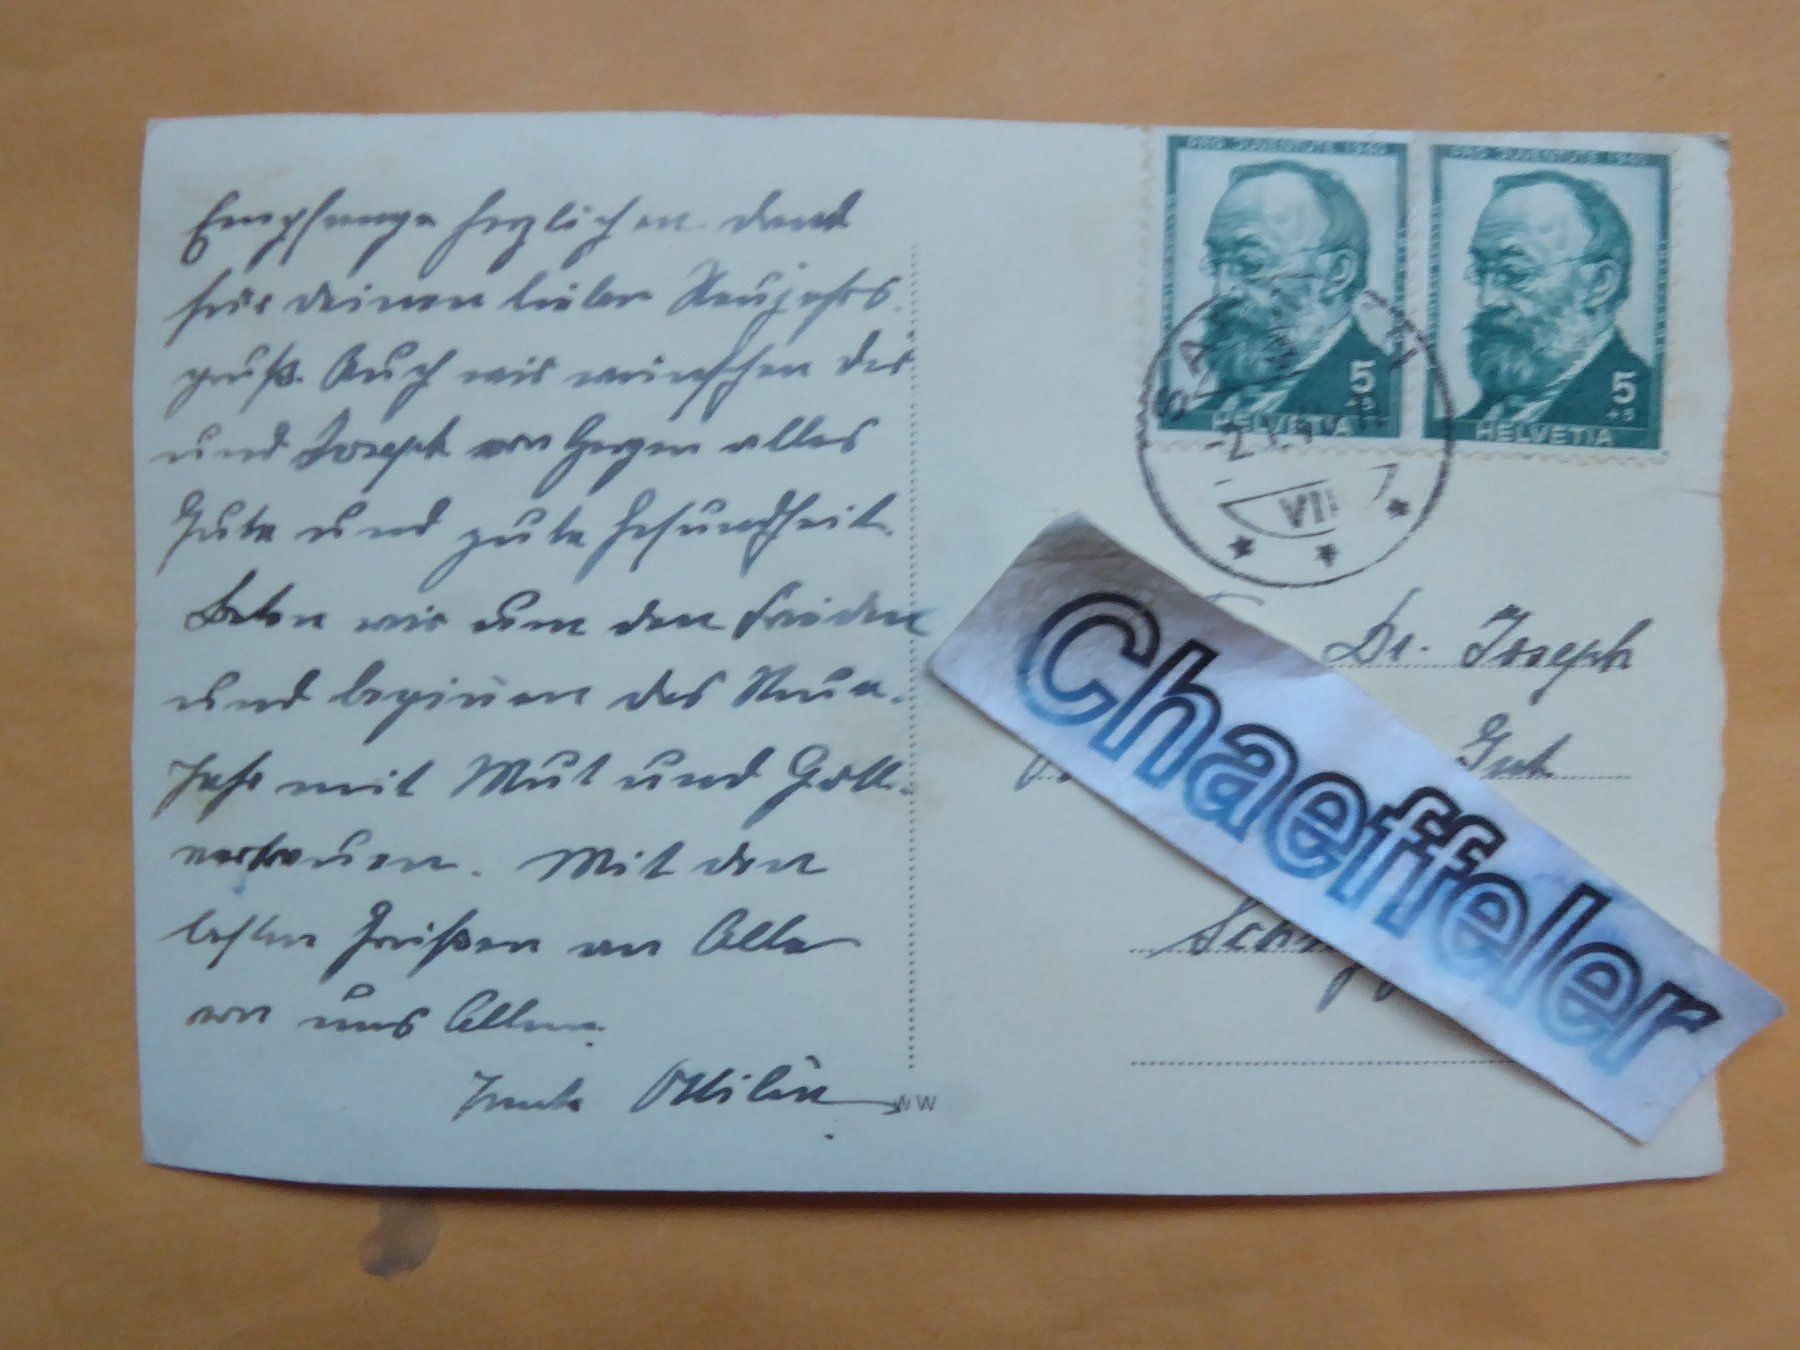 Empfange herzlichen Dank
für deinen lieben Neujahrs-
gruß. Auch wir wünschen dir
und Joseph von Herzen alles
Gute und gute Gesundheit.
Beten wir um den Frieden
und beginnen das Neue
Jahr mit Mut und Gott-
vertrauen. Mit den
besten Grüßen an Alle
von uns Allen.
Tante Ottilie
WW
PRO JUVENTUTE 1940
5
+5
HELVETIA
PRO JUVENTUTE 1940
5
+5
HELVETIA
VII
Dr. Joseph
Gut
Chaeffeler